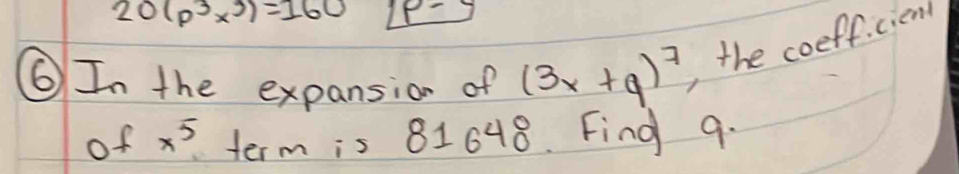 20(p³x³)=160
⑥ In the expansion of (3x+q)⁷, the coefficient
of x⁵ term is 81648. Find q.